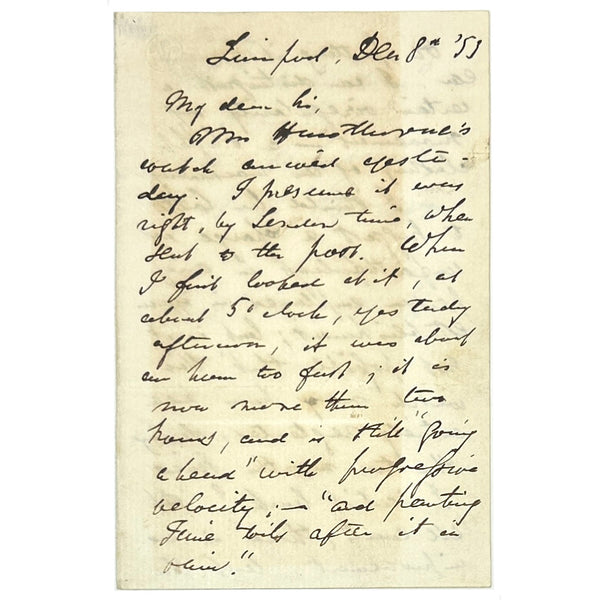 Liverpool, Decr 8th '53
My dear Sir,
Mrs Hawthorne's
watch arrived yester-
day. I presume it was
right, by London time, when
sent to the post. When
I first looked at it, at
about 5 o'clock, yesterday
afternoon, it was about
an hour too fast; it is
now more than two
hours, and is still "going
ahead" with progressive
velocity;—"and panting
Time toils after it in
vain."